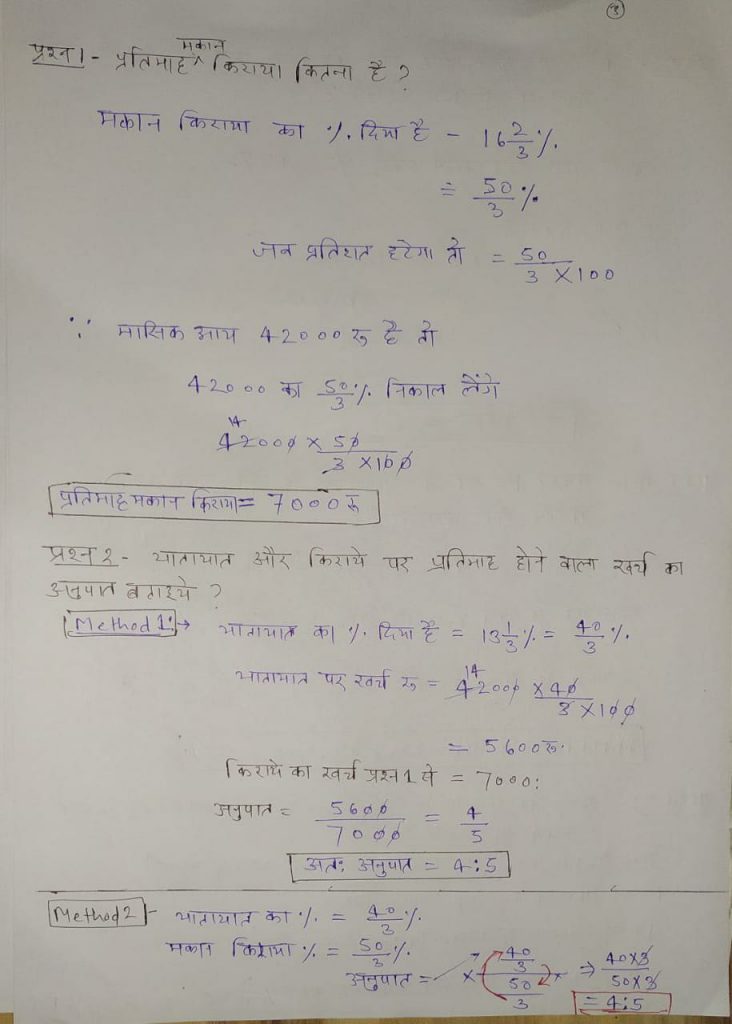 3
प्रश्न 1 - प्रतिमाह मकान किराया कितना है ?
मकान किराया का %. दिया है - 16 2/3 %.
= 50/3 %
जब प्रतिशत हटेगा तो = 50/3 × 100
∵ मासिक आय 42000 रू है तो
42000 का 50/3 %. निकाल लेंगे
14
42000 × 50/3 × 100
प्रतिमाह मकान किराया = 7000 रू
प्रश्न 2 - यातायात और किराये पर प्रतिमाह होने वाला खर्च का
अनुपात बताइये ?
Method 1: → यातायात का %. दिया है = 13 1/3 %. = 40/3 %.
14
यातायात पर खर्च रू = 42000 × 40/3 × 100
= 5600 रू.
किराये का खर्च प्रश्न 1 से = 7000:
अनुपात = 5600/7000 = 4/5
अतः अनुपात = 4:5
Method 2 - यातायात का %. = 40/3 %.
मकान किराया %. = 50/3 %.
अनुपात = × 40/3 / 50/3 × ⇒ 40×3/50×3
= 4:5